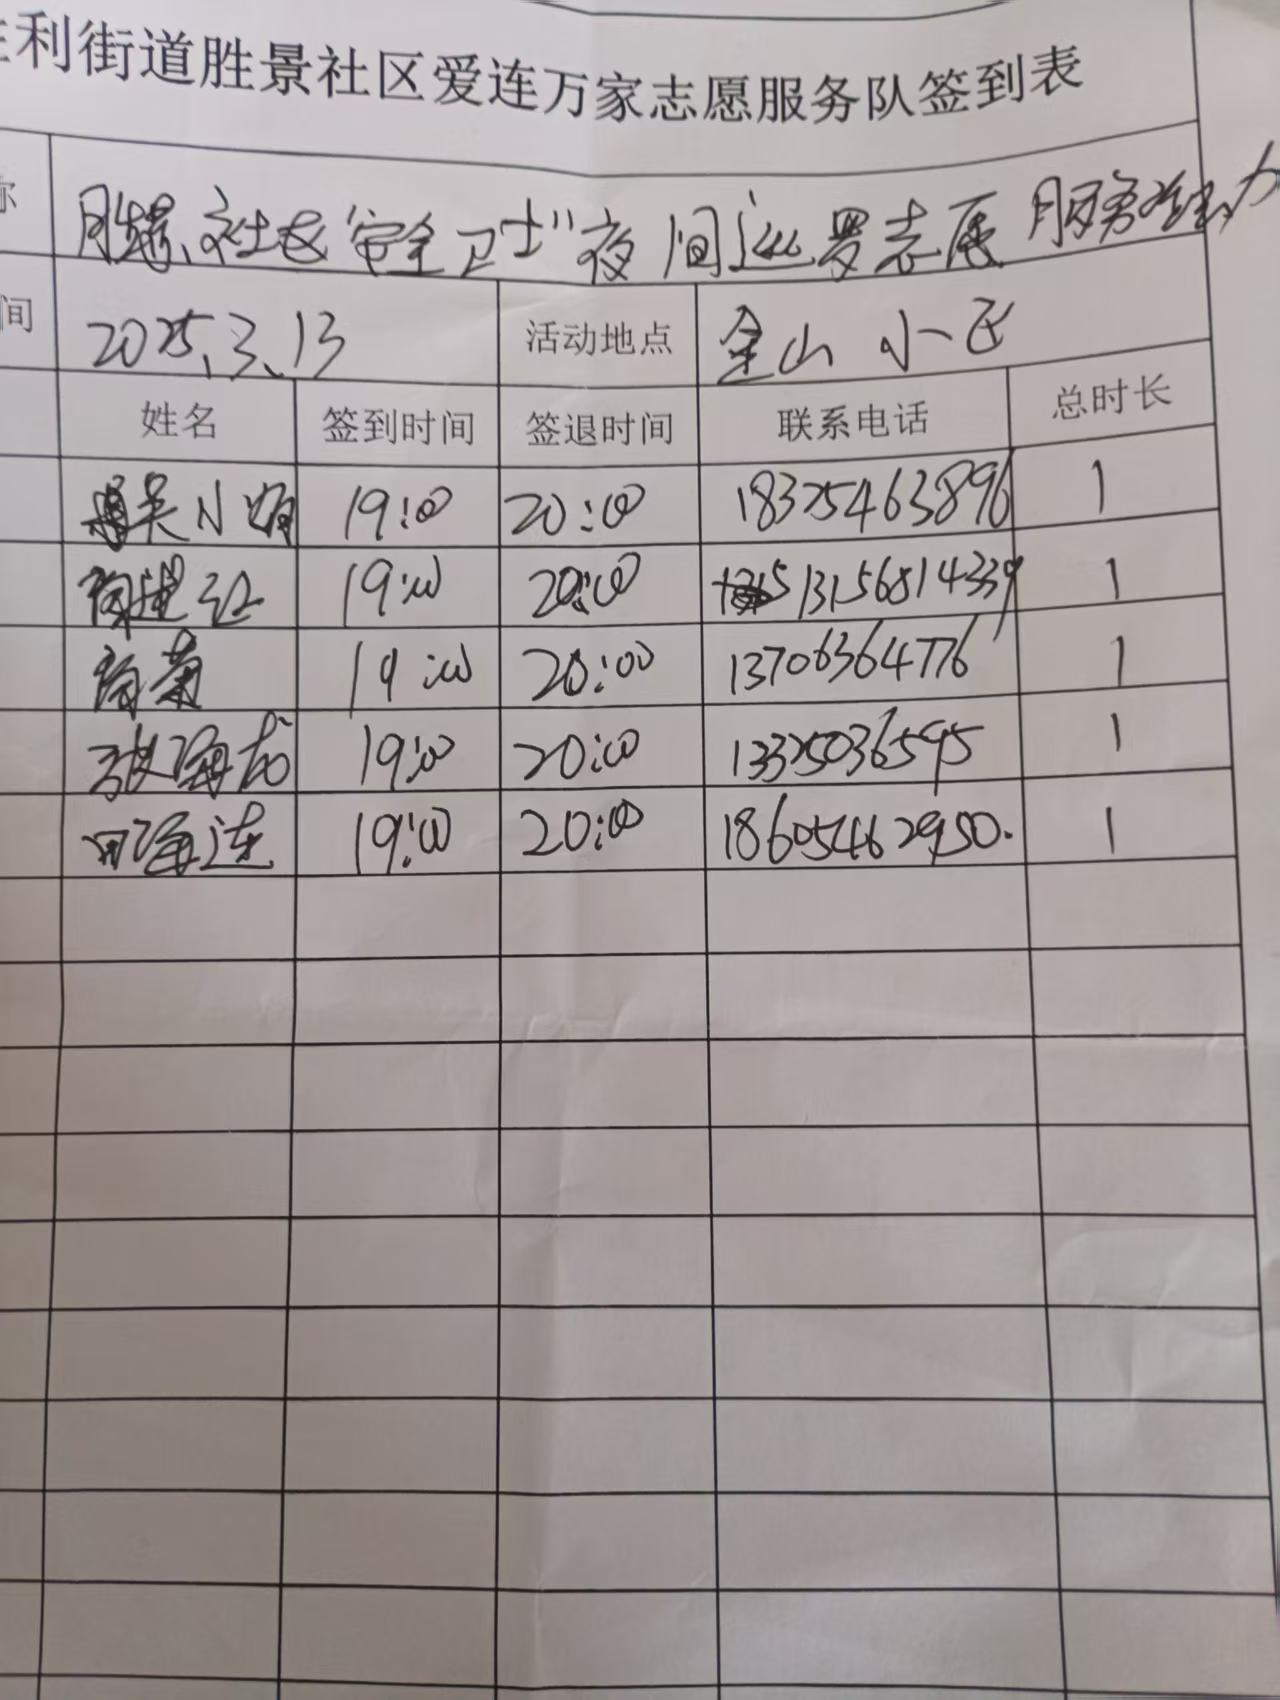 利街道胜景社区爱连万家志愿服务队签到表
称 胜景社区"安全卫士"夜间巡逻志愿服务活动
间 2025.3.13 活动地点 金山小区
姓名 签到时间 签退时间 联系电话 总时长
吴小 19:00 20:00 18325463896 1
陶建红 19:00 20:00 13156814339 1
菊 19:00 20:00 13706364776 1
张海龙 19:00 20:00 13325036595 1
田海连 19:00 20:00 18605462950. 1